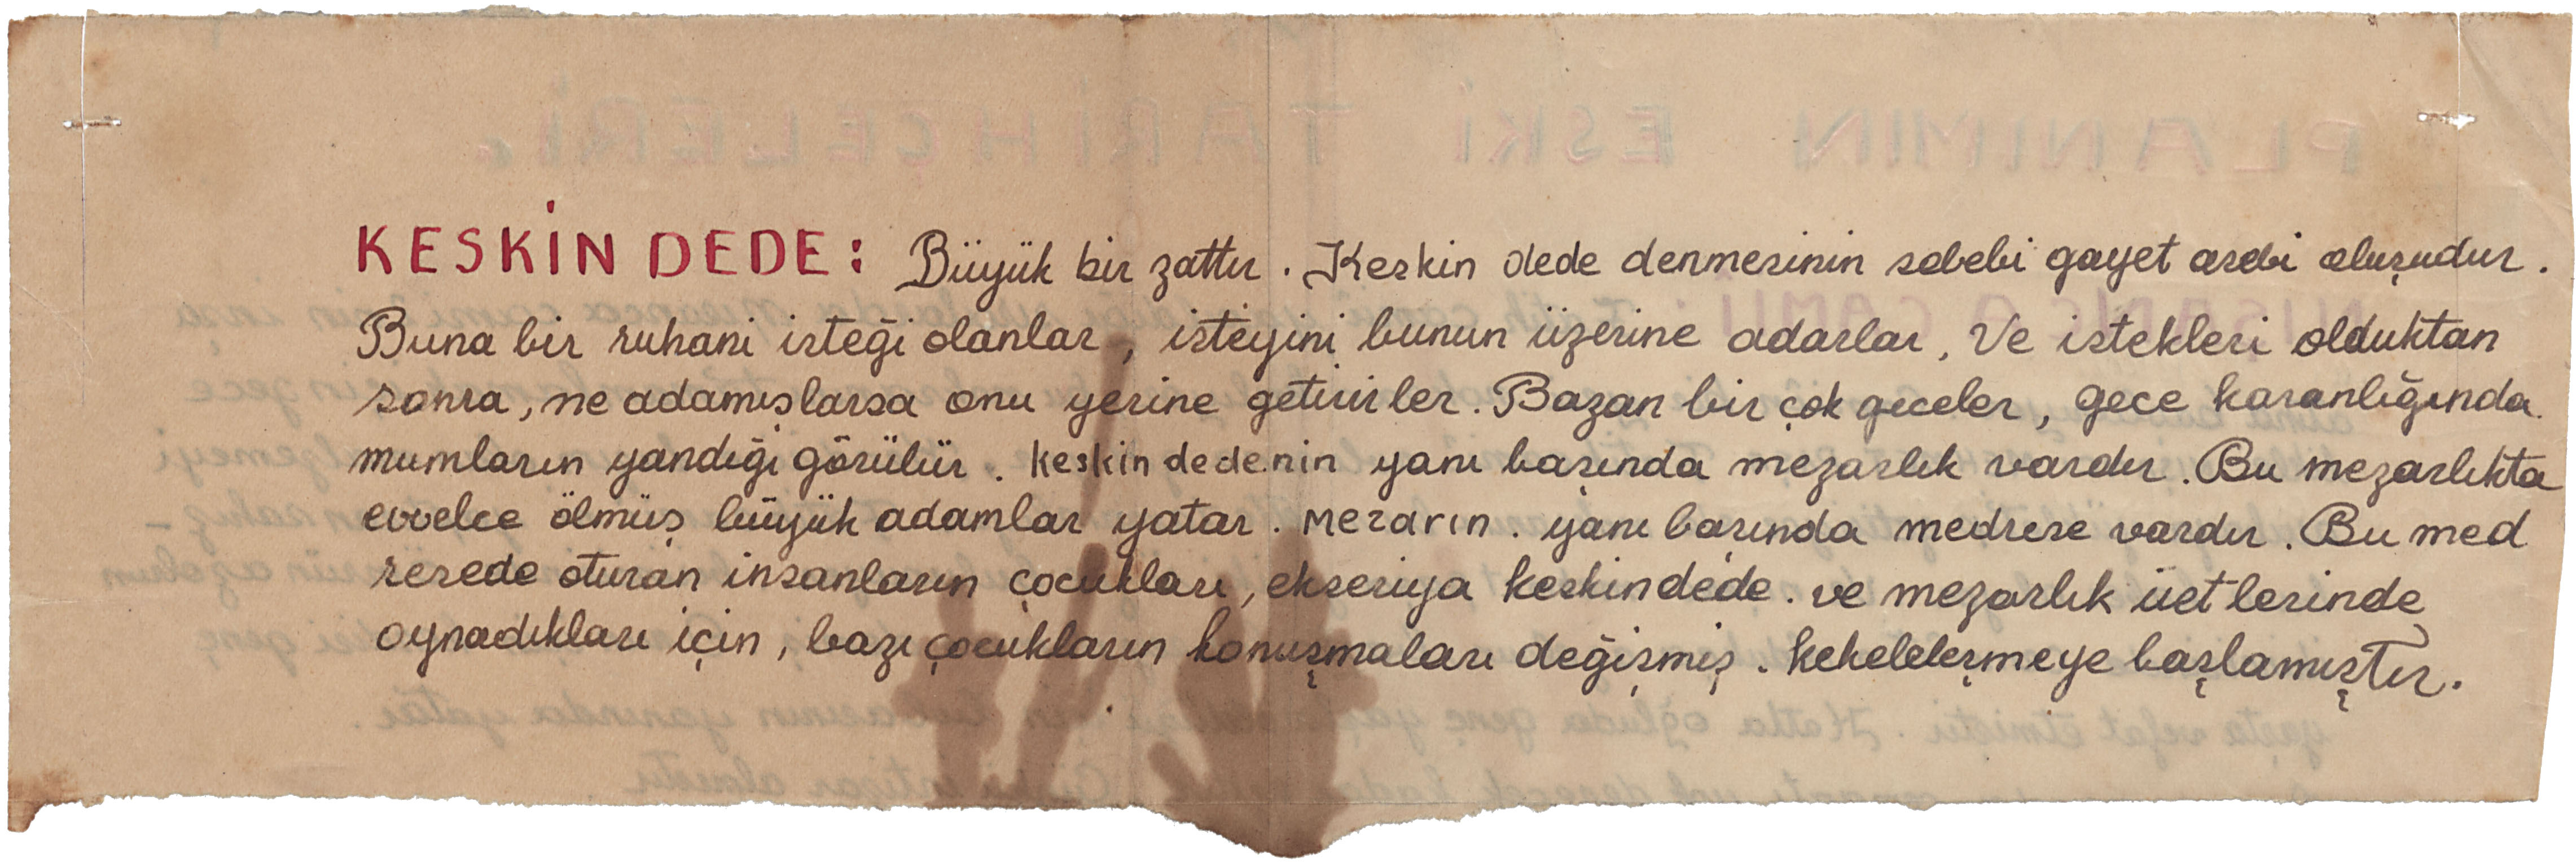 KESKİN DEDE: Büyük bir zattır. Keskin dede denmesinin sebebi gayet asebi oluşudur.
Buna bir ruhani isteği olanlar, isteyini bunun üzerine adarlar, Ve istekleri olduktan
sonra, ne adamışlarsa onu yerine getirirler. Bazan bir çok geceler, gece karanlığında
mumların yandığı görülür. Keskin dedenin yanı başında mezarlık vardır. Bu mezarlıkta
evvelce ölmüş büyük adamlar yatar. Mezarın. yanı başında medrese vardır. Bu med
resede oturan insanların çocukları, ekseriya keskindede. ve mezarlık üstlerinde
oynadıkları için, bazı çocukların konuşmaları değişmiş. kekeleleşmeye başlamıştır.